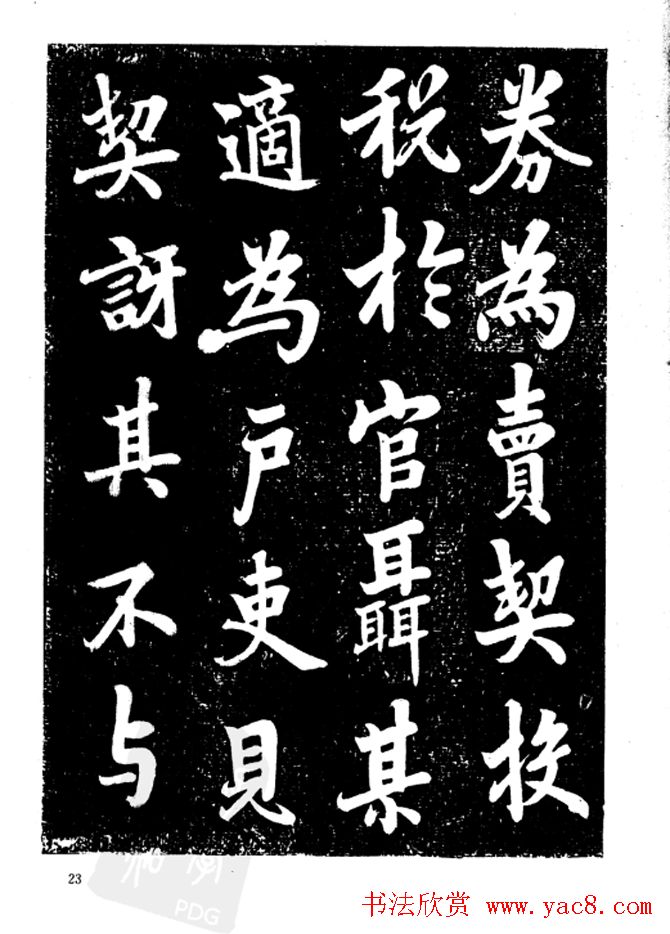 券為賣契投
稅於官聶某
適為戶吏見
契訝其不与
23
PDG
书法欣赏 www.yac8.com